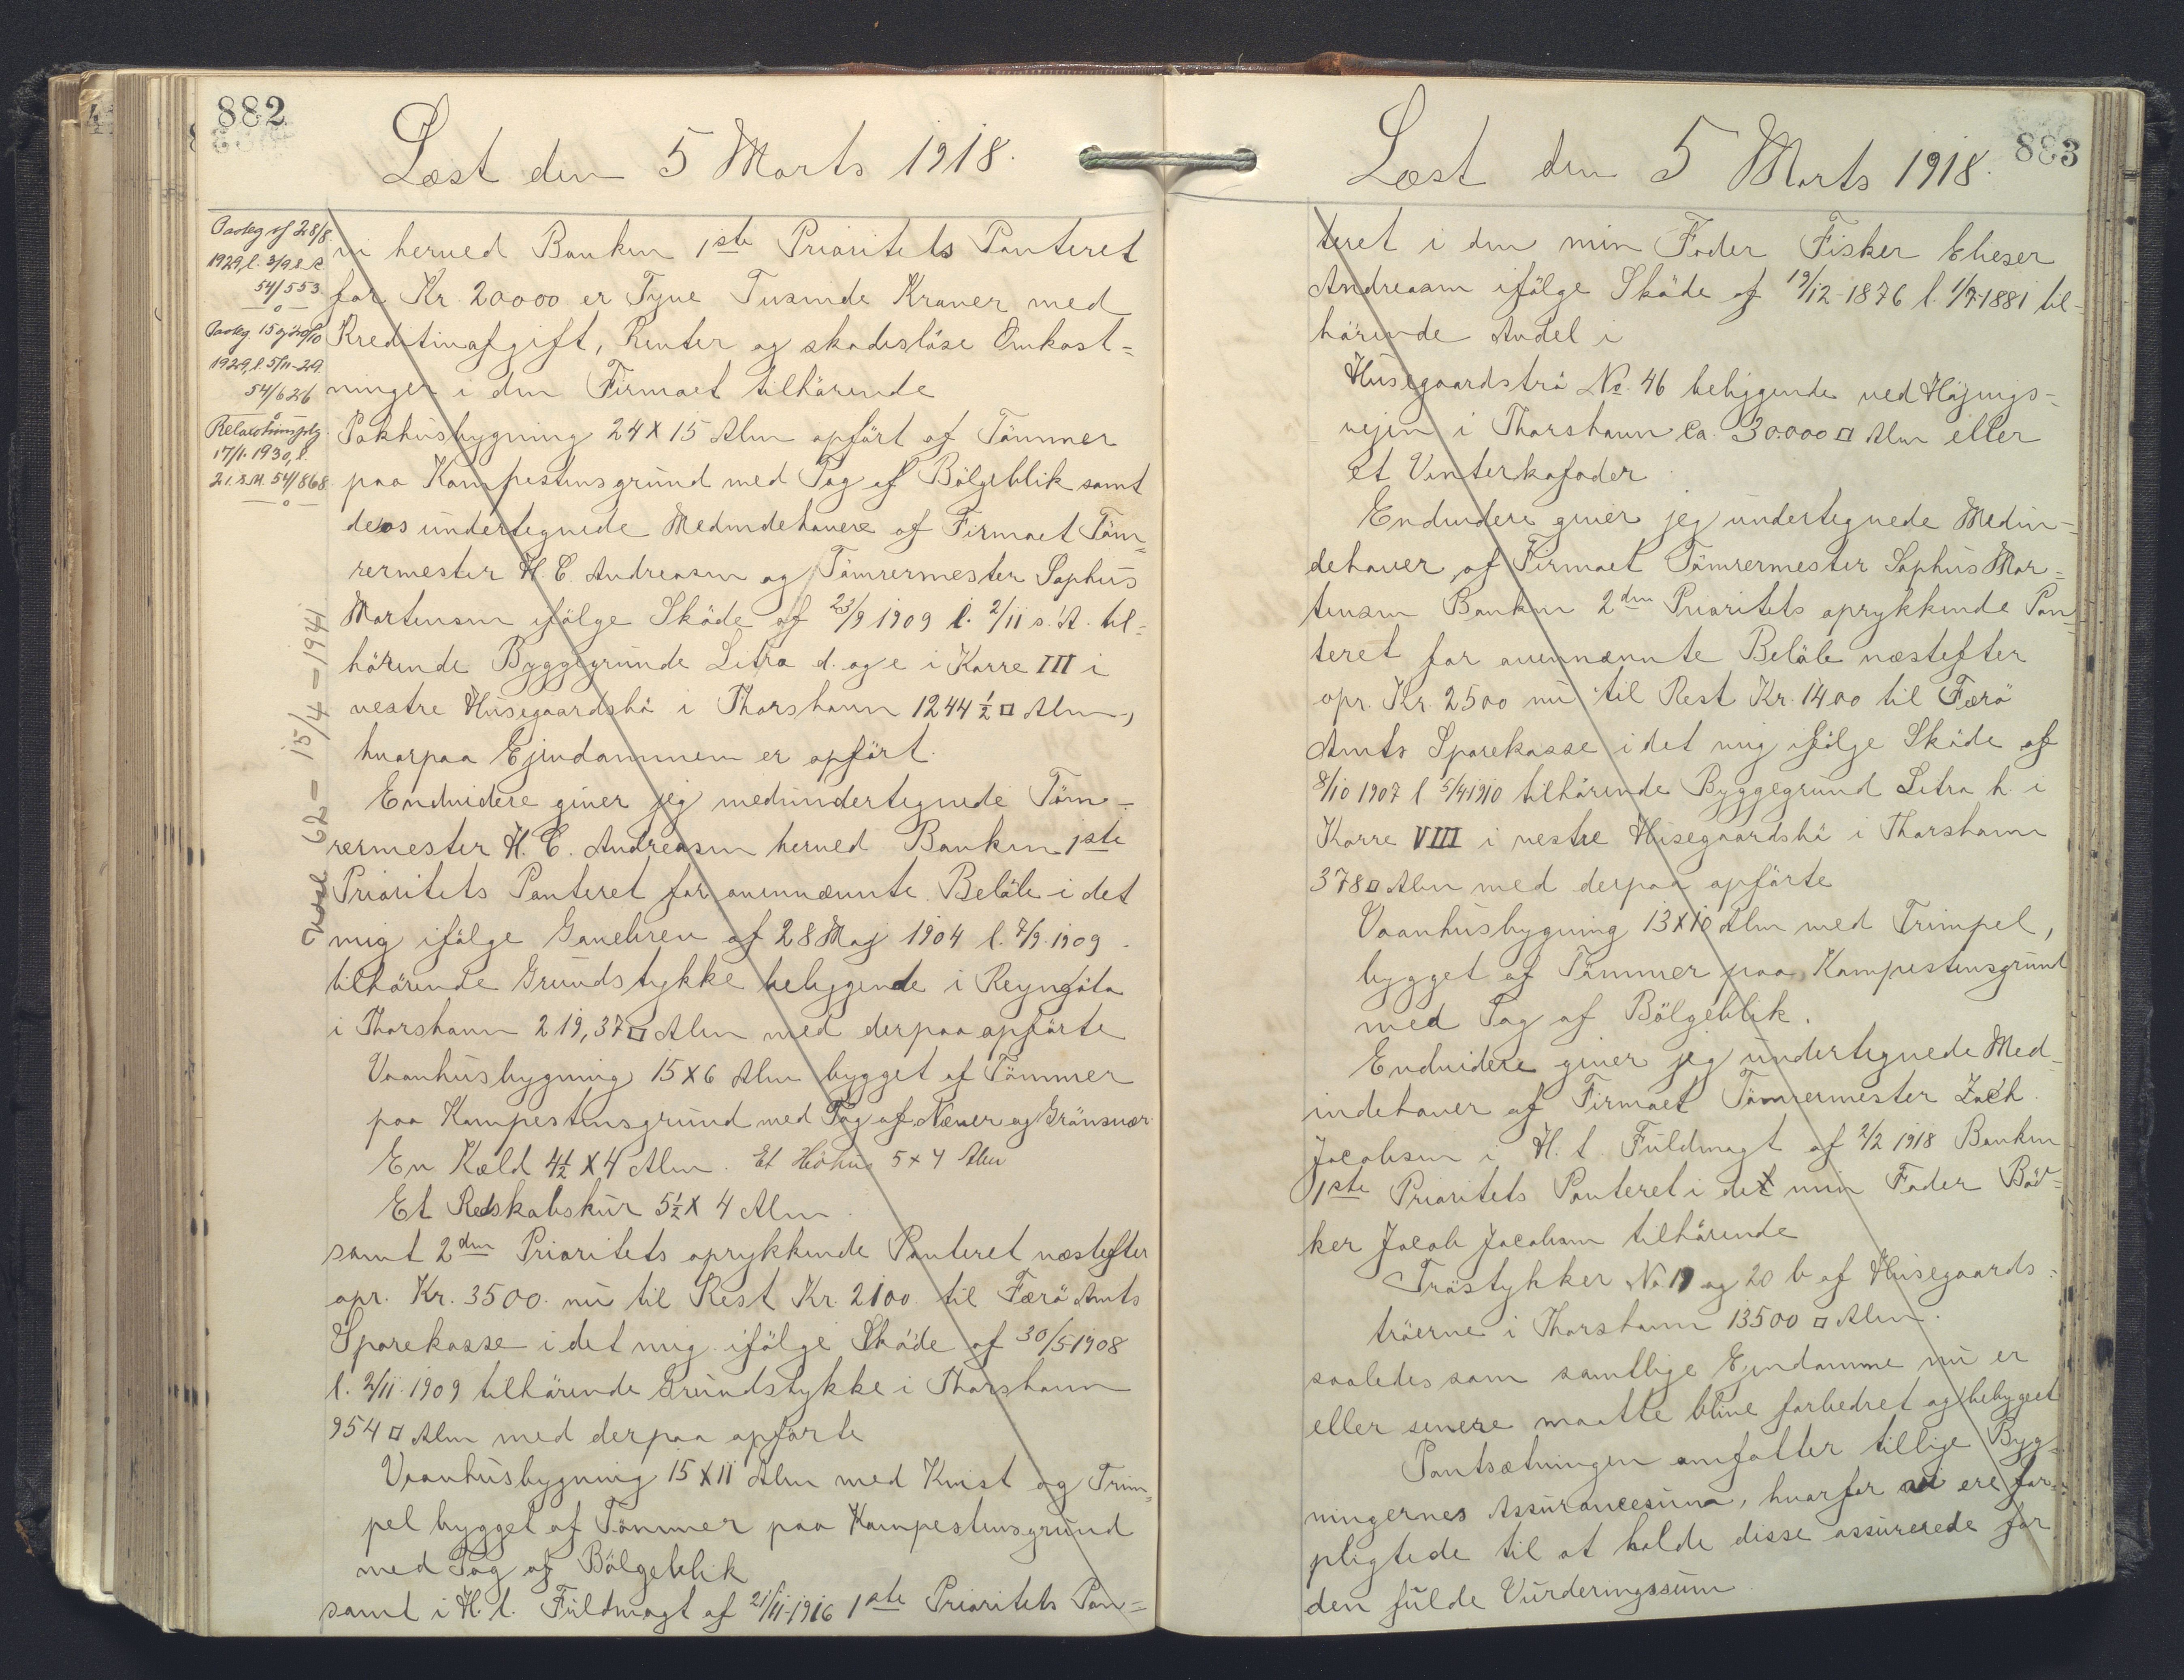 882
Læst den 5 Marts 1918.
Paateg af 28/8
1929, l. 3/9 s. A.
54/553
Paateg. 15 og 29/10
1929, l. 5/11-29.
54/626
Relaxationspteg.
17/1. 1930, l.
21. s. M. 54/868
62 - 15/4 - 1941
vi herved Banken 1ste Prioritets Panteret
for Kr. 20000 er Tyve Tusinde Kroner med
Kreditivafgift, Renter og skadesløse Omkost=
ninger i den Firmaet tilhörende
Pakhusbygning 24 X 15 Alen opfört af Tömmer
paa Kampestensgrund med Tag af Bölgeblik samt
de os undertegnede Medindehavere af Firmaet Töm=
rermester H. C. Andreasen og Tömrermester Sophus
Martensen ifölge Sköde af 23/9 1909 l. 2/11 s. A. til=
hörende Byggegrunde Litra d. og e i Karre III i
vestre Husegaardshå i Thorshavn 1244 ½ □ Alen,
hvorpaa Ejendommen er opfört.
Endvidere giver jeg medundertegnede Töm=
rermester H. C. Andreasen herved Banken 1ste
Prioritets Panteret for ovennævnte Belöb i det
mig ifölge Gavebrev af 28 Maj 1904 l. 7/9. 1909.
tilhörende Grundstykke beliggende i Reyngöta
i Thorshavn 219,37 □ Alen med derpaa opförte
Vaanhusbygning 15 X 6 Alen bygget af Tömmer
paa Kampestensgrund med Tag af Næver og Grönsvær
En Kæld 4½ X 4 Alen. Et Höhus 5 x 4 Alen
Et Redskabskur 5½ X 4 Alen.
samt 2den Prioritets oprykkende Panteret næstefter
opr. Kr. 3500. nu til Rest Kr. 2100 til Færö Amts
Sparekasse i det mig ifölge Sköde af 30/5 1908
l. 2/11. 1909 tilhörende Grundstykke i Thorshavn
954 □ Alen med derpaa opförte
Vaanhusbygning 15 X 11 Alen med Kvist og Trim=
pel bygget af Tömmer paa Kampestensgrund
med Tag af Bölgeblik
samt i H. t. Fuldmagt af 21/11-1916 1ste Prioritets Pan=
883
Læst den 5 Marts 1918.
teret i den min Fader Fisker Elieser
Andreasen ifölge Sköde af 19/12-1876 l. 1/7-1881 til=
hörende Andel i
Husegaardströ No. 46 beliggende ved Höjvigs=
vejen i Thorshavn ca. 30.000 □ Alen eller
et Vinterkofoder
Endvidere giver jeg undertegnede Medin=
dehaver af Firmaet Tömrermester Sophus Mar=
tensen Banken 2den Prioritets oprykkende Pan=
teret for ovennævnte Belöb næstefter
opr. Kr. 2500 nu til Rest Kr. 1400 til Færö
Amts Sparekasse i det mig ifölge Sköde af
8/10 1907 l 5/4 1910 tilhörende Byggegrund Litra h. i
Karre VIII i vestre Husegaardshå i Thorshavn
378 □ Alen med derpaa opförte
Vaanhusbygning 13 X 10 Alen med Trimpel,
bygget af Tömmer paa Kampestensgrund
med Tag af Bölgeblik.
Endvidere giver jeg undertegnede Med=
indehaver af Firmaet Tömrermester Zach.
Jacobsen i H. t. Fuldmagt af 2/2 1918 Banken
1ste Prioritets Panteret i det min Fader Böd=
ker Jacob Jacobsen tilhörende
Tröstykker No 19 og 20 b af Husegaards=
tröerne i Thorshavn 13500 □ Alen.
saaledes som samtlige Ejendomme nu er
eller senere maatte blive forbedret og bebygget
Pantsætningen omfatter tillige Byg=
ningernes Assurancesum, hvorfor vi ere for=
pligtede til at holde disse assurerede for
den fulde Vurderingssum